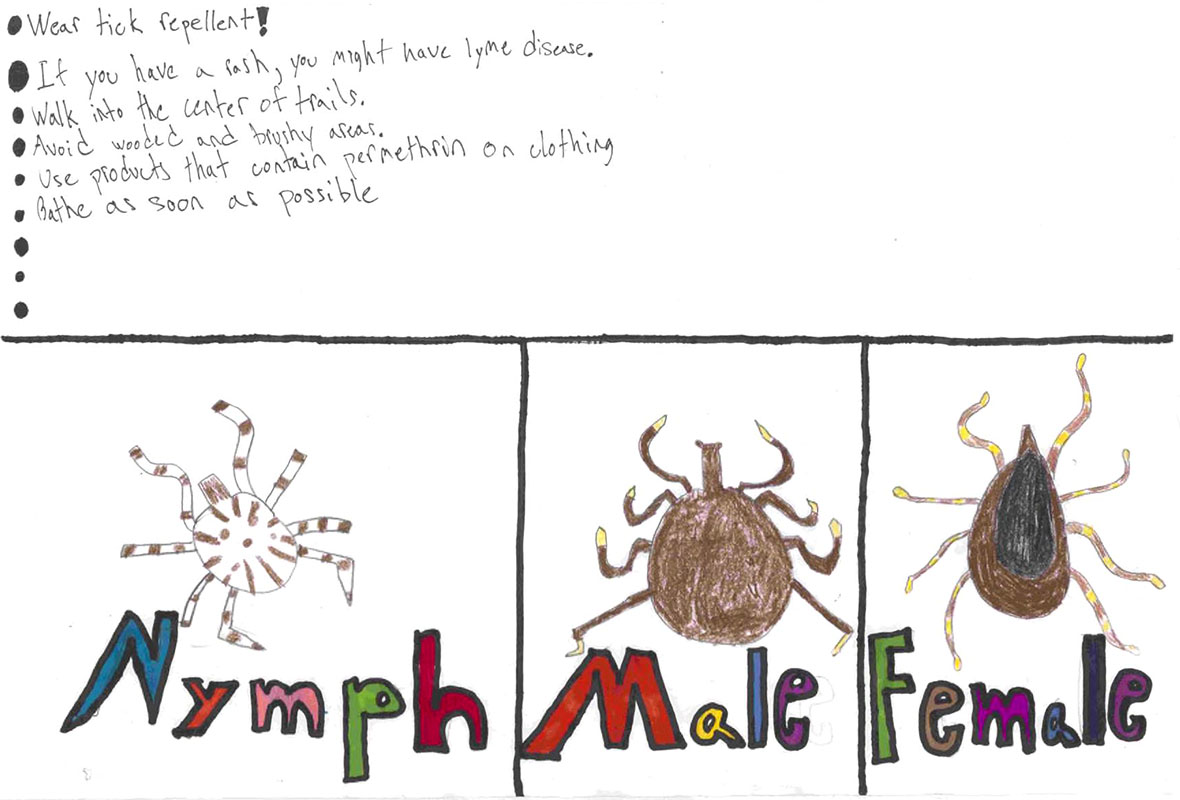 Wear tick repellent!
If you have a rash, you might have lyme disease.
Walk into the center of trails.
Avoid wooded and brushy areas.
Use products that contain permethrin on clothing
Bathe as soon as possible
Nymph
Male
Female